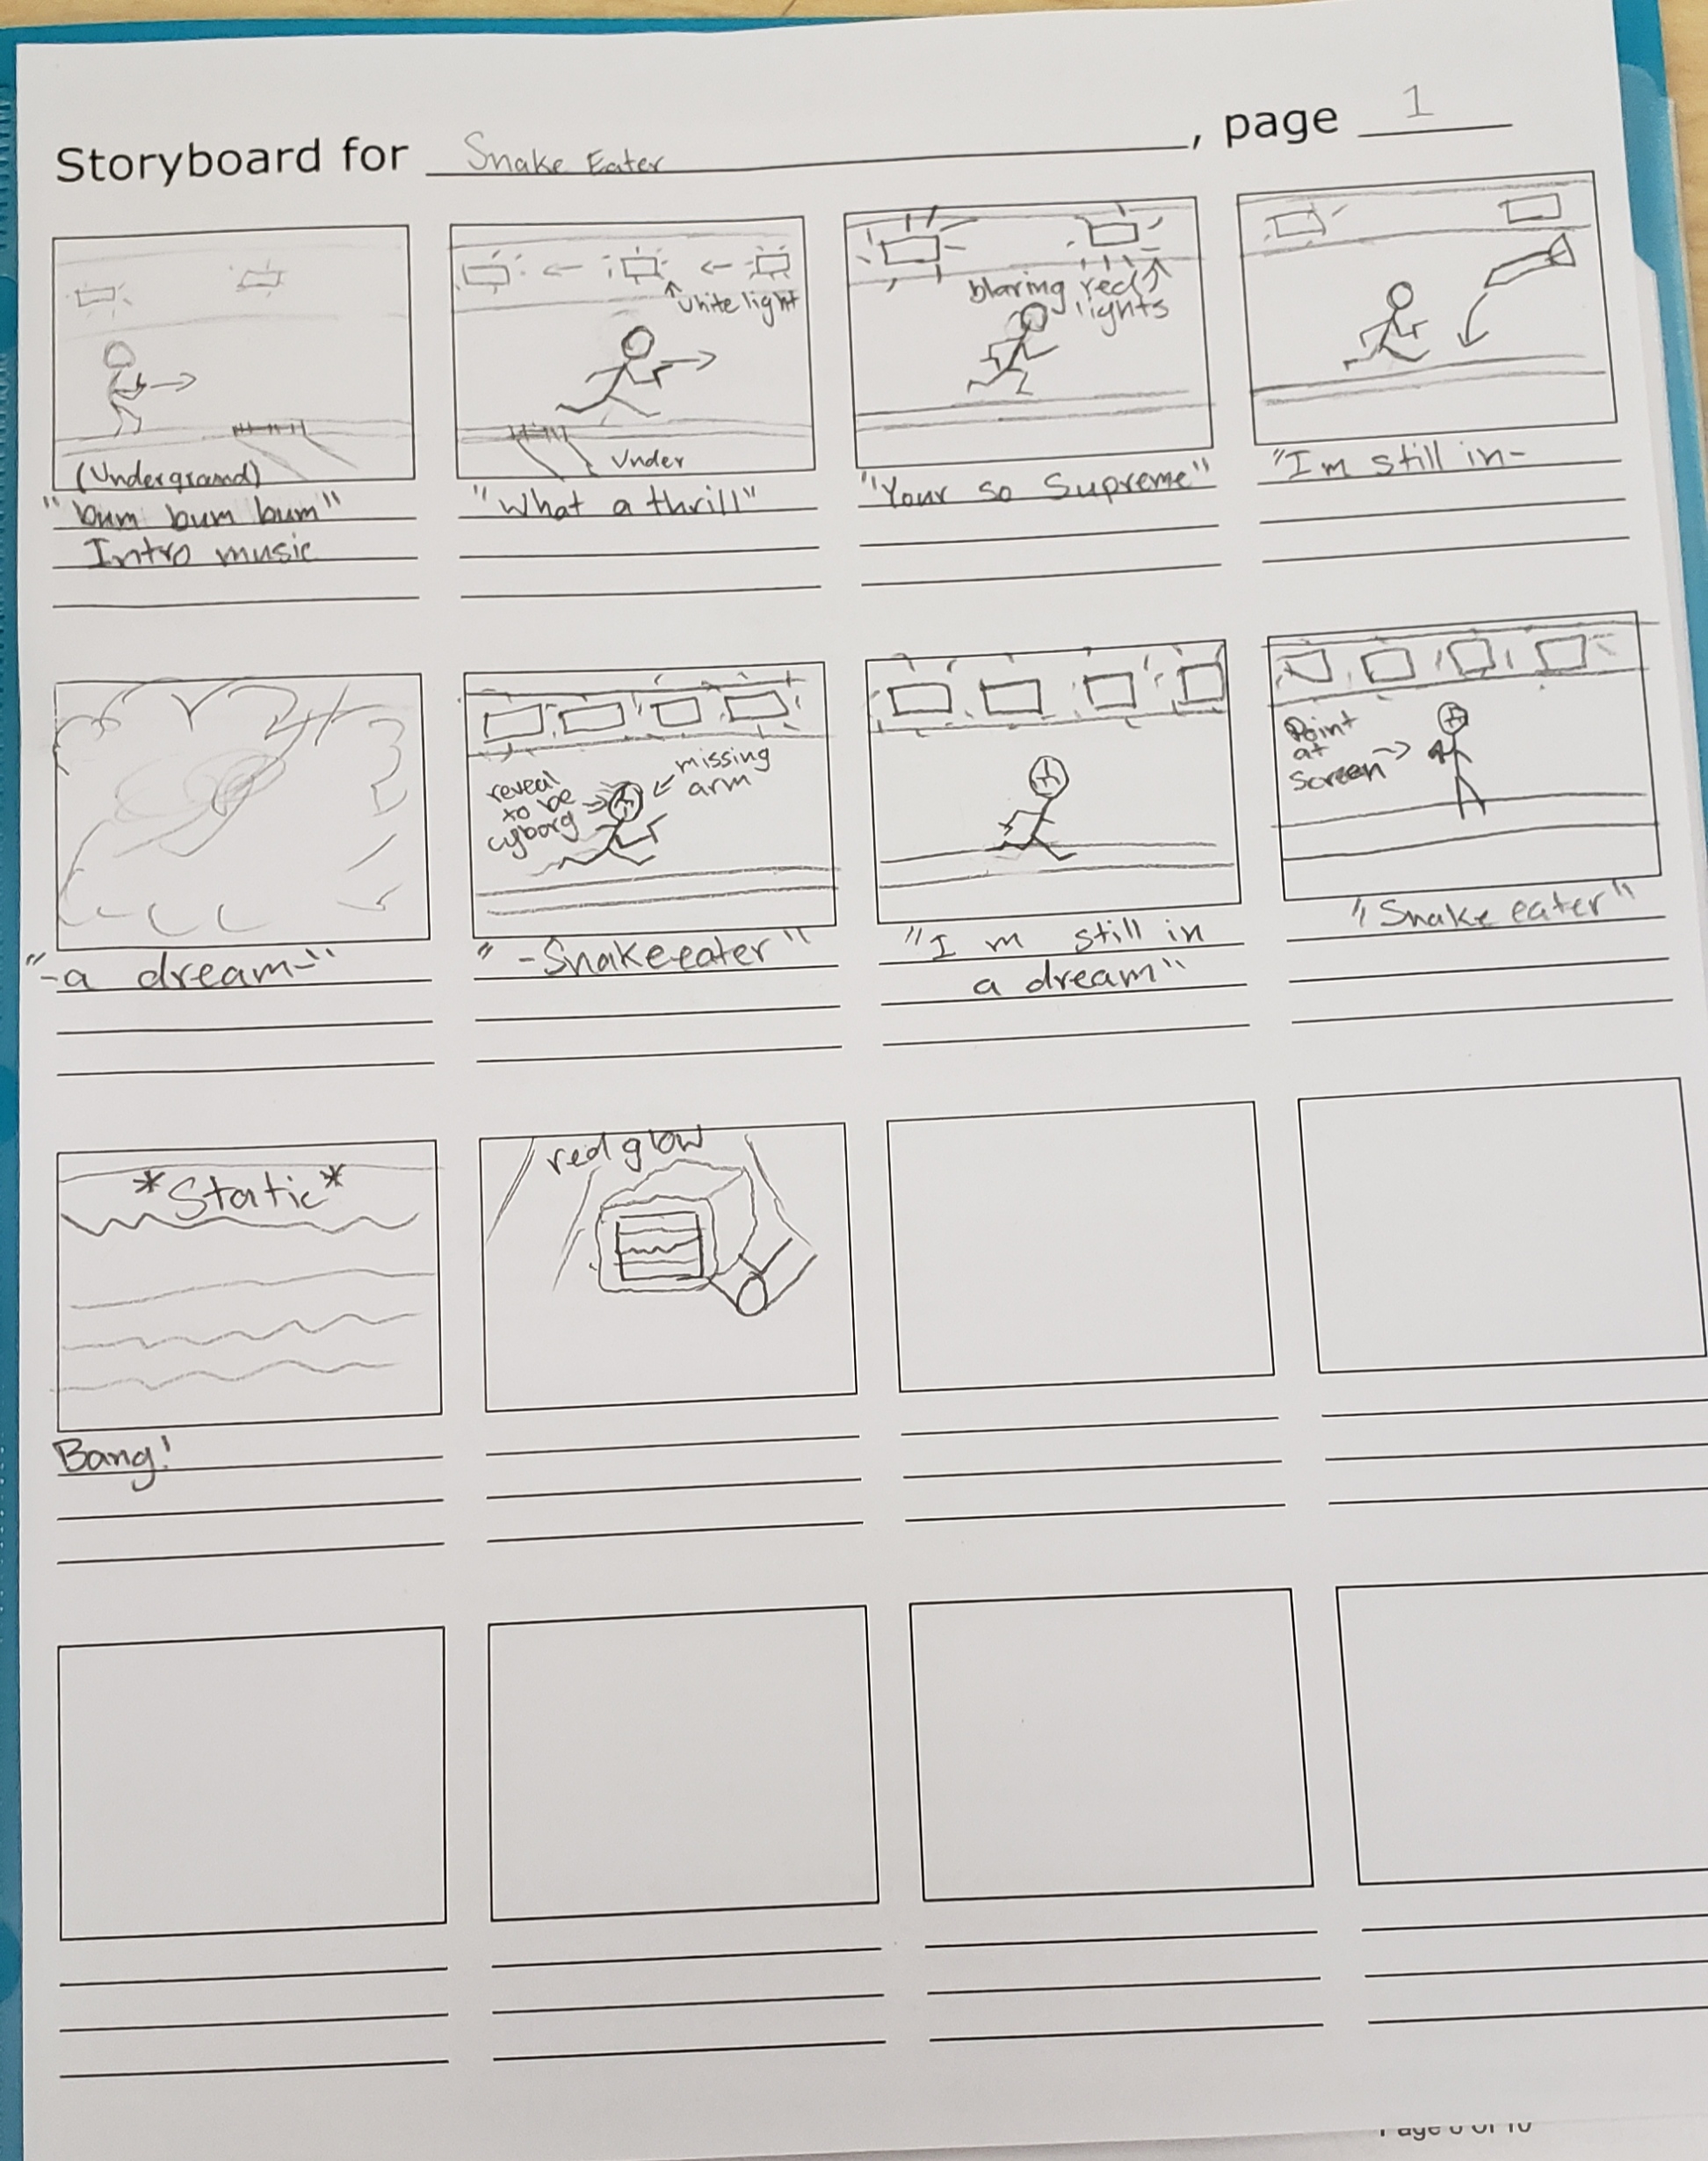 Storyboard for Snake Eater, page 1
(Underground)
"bum bum bum"
Intro music
white light
Under
"What a thrill"
blaring red
lights
"Your so Supreme"
"Im still in-
"-a dream-"
reveal
to be
cyborg
missing
arm
"-Snake eater"
"I m still in
a dream"
Point
at
Screen
"Snake eater"
*Static*
Bang!
red glow